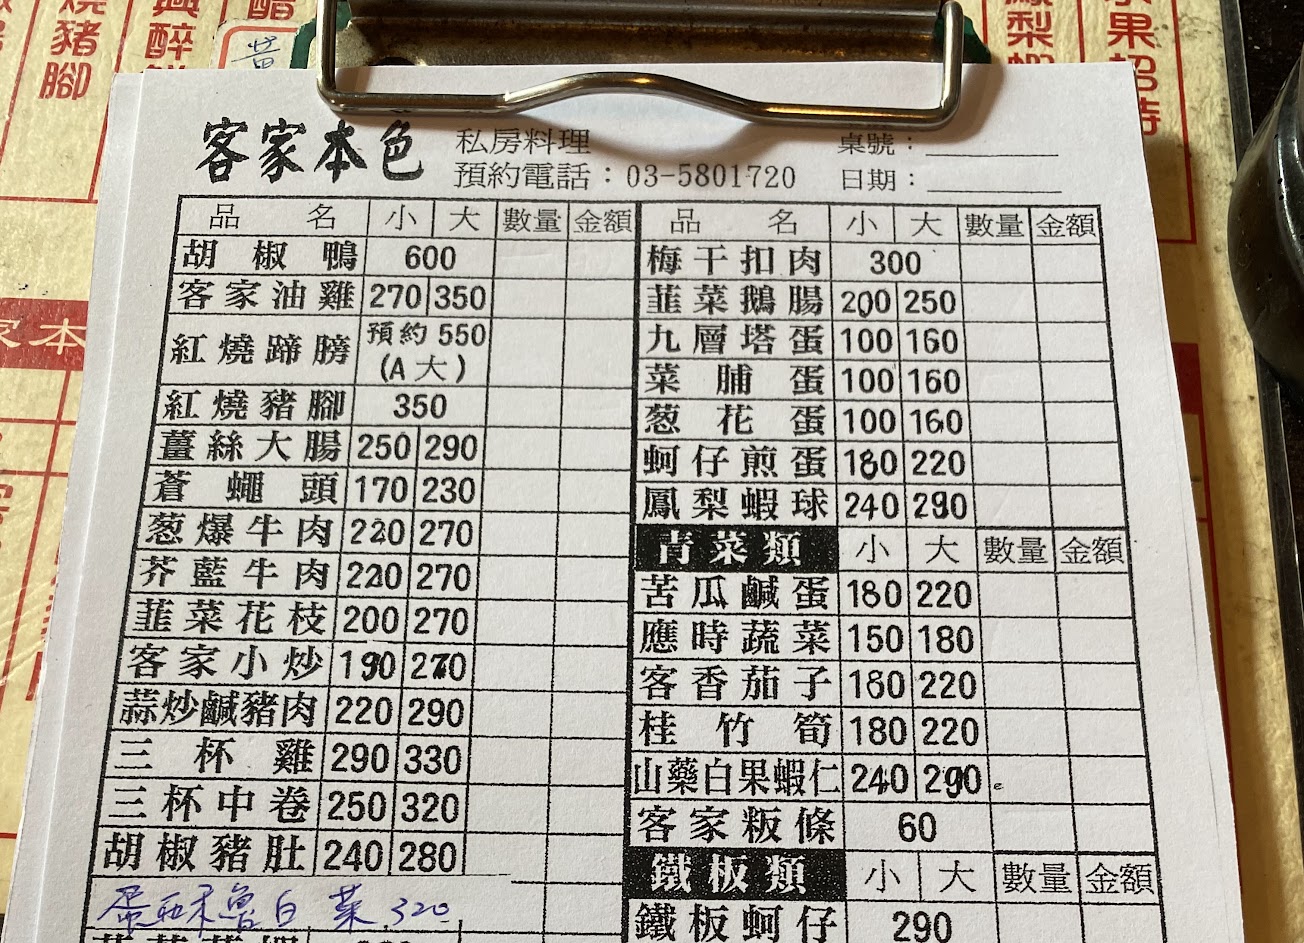 客家本色
私房料理
預約電話：03-5801720
桌號：
日期：
品名 小 大 數量 金額
胡椒鴨 600
客家油雞 270 350
紅燒蹄膀 預約 550 (A大)
紅燒豬腳 350
薑絲大腸 250 290
蒼蠅頭 170 230
葱爆牛肉 220 270
芥藍牛肉 220 270
韮菜花枝 200 270
客家小炒 190 270
蒜炒鹹豬肉 220 290
三杯雞 290 330
三杯中卷 250 320
胡椒豬肚 240 280
蛋酥魯白菜 320
品名 小 大 數量 金額
梅干扣肉 300
韮菜鵝腸 200 250
九層塔蛋 100 160
菜脯蛋 100 160
葱花蛋 100 160
蚵仔煎蛋 180 220
鳳梨蝦球 240 290
青菜類 小 大 數量 金額
苦瓜鹹蛋 180 220
應時蔬菜 150 180
客香茄子 180 220
桂竹筍 180 220
山藥白果蝦仁 240 290
客家粄條 60
鐵板類 小 大 數量 金額
鐵板蚵仔 290
燒豬腳
醉
鳳梨蝦
水果招待
家本